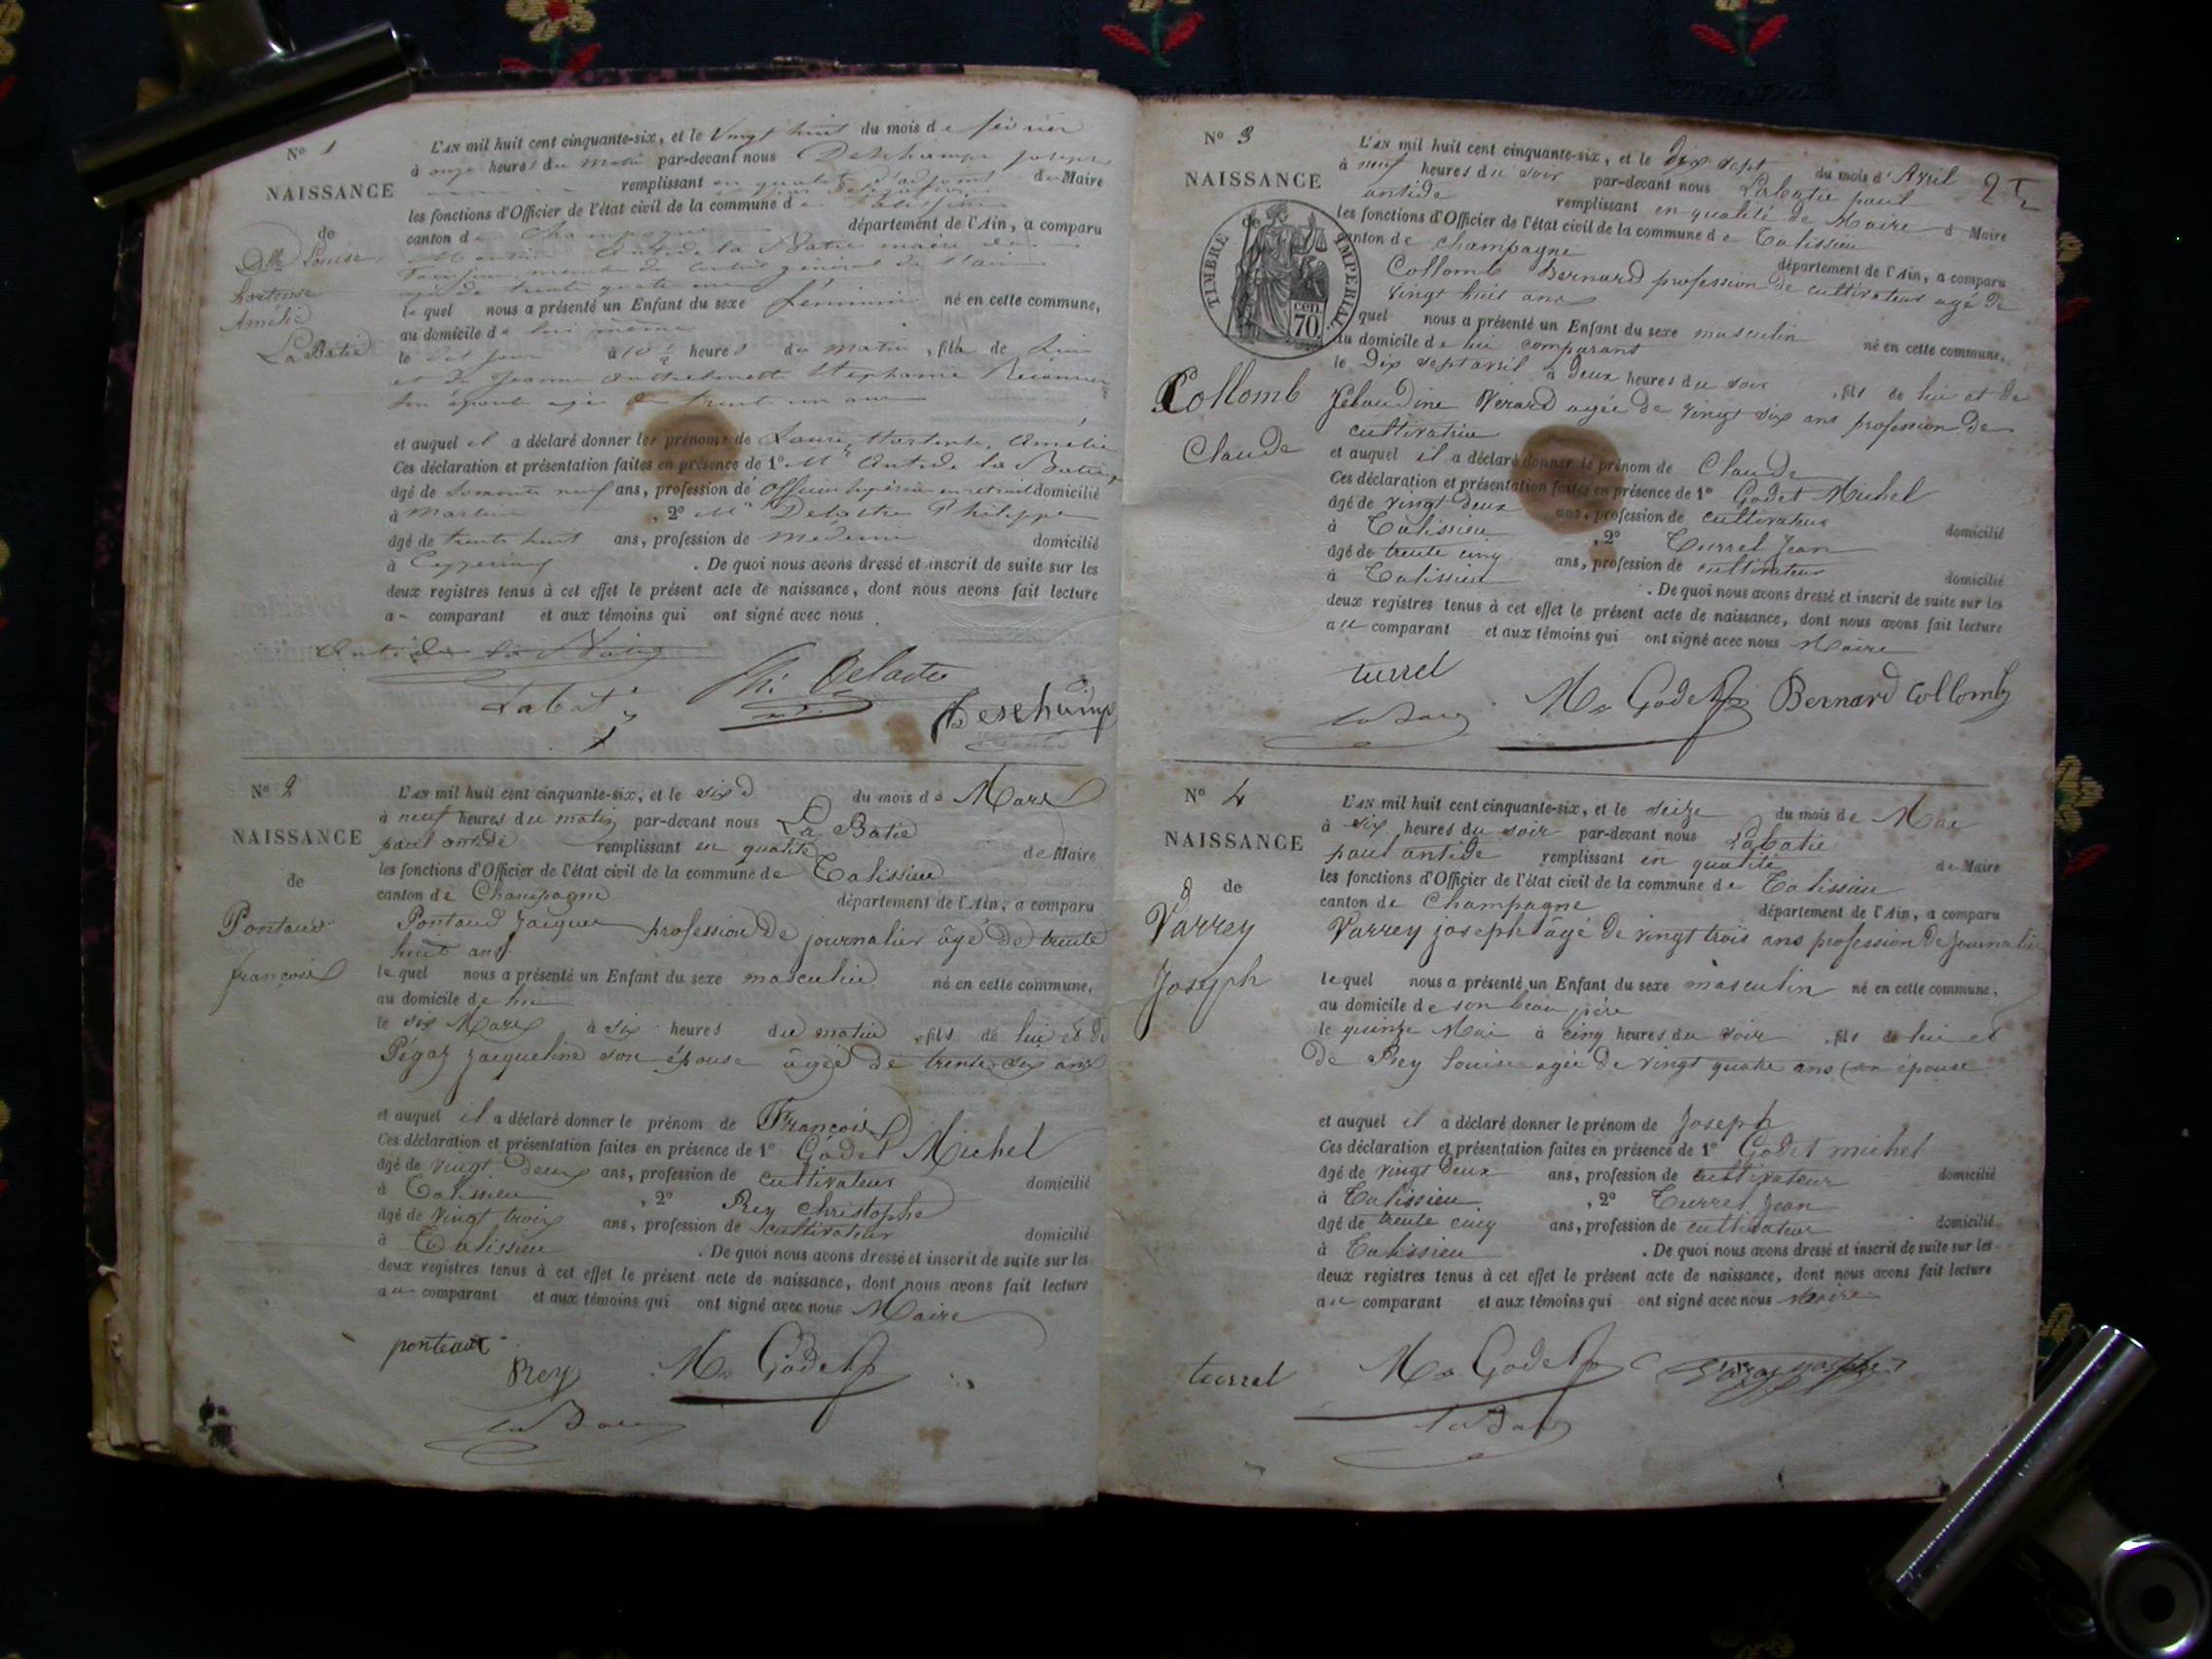 N° 1
NAISSANCE
de
Dlle Louise
hortense
Amélie
La Batie
L'AN mil huit cent cinquante-six, et le Vingt huit du mois de février
à onze heures du matin par-devant nous Deschamps Joseph
remplissant en qualité d'adjoint de Maire
les fonctions d'Officier de l'état civil de la commune de Talissieu
canton de Champagne département de l'Ain, a comparu
Monsieur Antide la Batie maire de
Talissieu membre du Conseil général de l'ain
agé de trente quatre ans
le quel nous a présenté un Enfant du sexe féminin né en cette commune,
au domicile de lui même
le dit jour à 10 ½ heures du matin, fille de lui
et de Jeanne Anthelmette Stéphanie Récamier
son épouse agée de trente un ans
et auquel il a déclaré donner les prénoms de Louise, Hortense, Amélie
Ces déclaration et présentation faites en présence de 1° Mr Antide la Batie
âgé de soixante neuf ans, profession de Officier supérieur en retraite domicilié
à , 2° Mr Delastre Philippe
âgé de trente huit ans, profession de médecin domicilié
à Ceyzerieux . De quoi nous avons dressé et inscrit de suite sur les
deux registres tenus à cet effet le présent acte de naissance, dont nous avons fait lecture
a comparant et aux témoins qui ont signé avec nous
Antide la Batie
Labatie Ph. Delastre Deschamps
N° 2
NAISSANCE
de
Pontaud
françois
L'AN mil huit cent cinquante-six, et le six du mois de Mars
à neuf heures du matin par-devant nous La Batie
paul antide remplissant en qualité de Maire
les fonctions d'Officier de l'état civil de la commune de Talissieu
canton de Champagne département de l'Ain, a comparu
Pontaud Jacques profession de journalier âgé de trente
huit ans
le quel nous a présenté un Enfant du sexe masculin né en cette commune,
au domicile de lui
le six Mars à six heures du matin, fils de lui et de
Pégaz Jacqueline son épouse âgée de trente six ans
et auquel il a déclaré donner le prénom de François
Ces déclaration et présentation faites en présence de 1° Godet Michel
âgé de vingt deux ans, profession de cultivateur domicilié
à Talissieu , 2° Rey Christophe
âgé de vingt trois ans, profession de cultivateur domicilié
à Talissieu . De quoi nous avons dressé et inscrit de suite sur les
deux registres tenus à cet effet le présent acte de naissance, dont nous avons fait lecture
au comparant et aux témoins qui ont signé avec nous Maire
ponteaut Rey M Godet
La Batie
N° 3
NAISSANCE
de
TIMBRE IMPERIAL
70 cen.
Collomb
Claude
L'AN mil huit cent cinquante-six, et le dix sept du mois d'Avril
à neuf heures du soir par-devant nous Labatie paul
antide remplissant en qualité de Maire d Maire
les fonctions d'Officier de l'état civil de la commune de Talissieu
canton de champagne département de l'Ain, a comparu
Collomb Bernard profession de cultivateur agé de
vingt huit ans
quel nous a présenté un Enfant du sexe masculin né en cette commune,
au domicile de lui comparant
le Dix sept avril à deux heures du soir, fils de lui et de
Claudine Vérard agée de vingt six ans profession de
cultivatrice
et auquel il a déclaré donner le prénom de Claude
Ces déclaration et présentation faites en présence de 1° Godet Michel
âgé de vingt deux ans, profession de cultivateur domicilié
à Talissieu , 2° Turrel Jean
âgé de trente cinq ans, profession de cultivateur domicilié
à Talissieu . De quoi nous avons dressé et inscrit de suite sur les
deux registres tenus à cet effet le présent acte de naissance, dont nous avons fait lecture
au comparant et aux témoins qui ont signé avec nous Maire
turrel
La Batie M Godet Bernard Collomb
N° 4
NAISSANCE
de
Varrey
Joseph
L'AN mil huit cent cinquante-six, et le seize du mois de Mai
à six heures du soir par-devant nous Labatie
paul antide remplissant en qualité de Maire
les fonctions d'Officier de l'état civil de la commune de Talissieu
canton de Champagne département de l'Ain, a comparu
Varrey joseph âgé de vingt trois ans profession de journalier
le quel nous a présenté un Enfant du sexe masculin né en cette commune,
au domicile de son beau père
le quinze Mai à cinq heures du soir, fils de lui et
de Rey Louise agée de vingt quatre ans son épouse
et auquel il a déclaré donner le prénom de Joseph
Ces déclaration et présentation faites en présence de 1° Godet michel
âgé de vingt deux ans, profession de cultivateur domicilié
à Talissieu , 2° Turrel Jean
âgé de trente cinq ans, profession de cultivateur domicilié
à Talissieu . De quoi nous avons dressé et inscrit de suite sur les
deux registres tenus à cet effet le présent acte de naissance, dont nous avons fait lecture
au comparant et aux témoins qui ont signé avec nous Maire
turrel M Godet Varrey joseph
La Batie